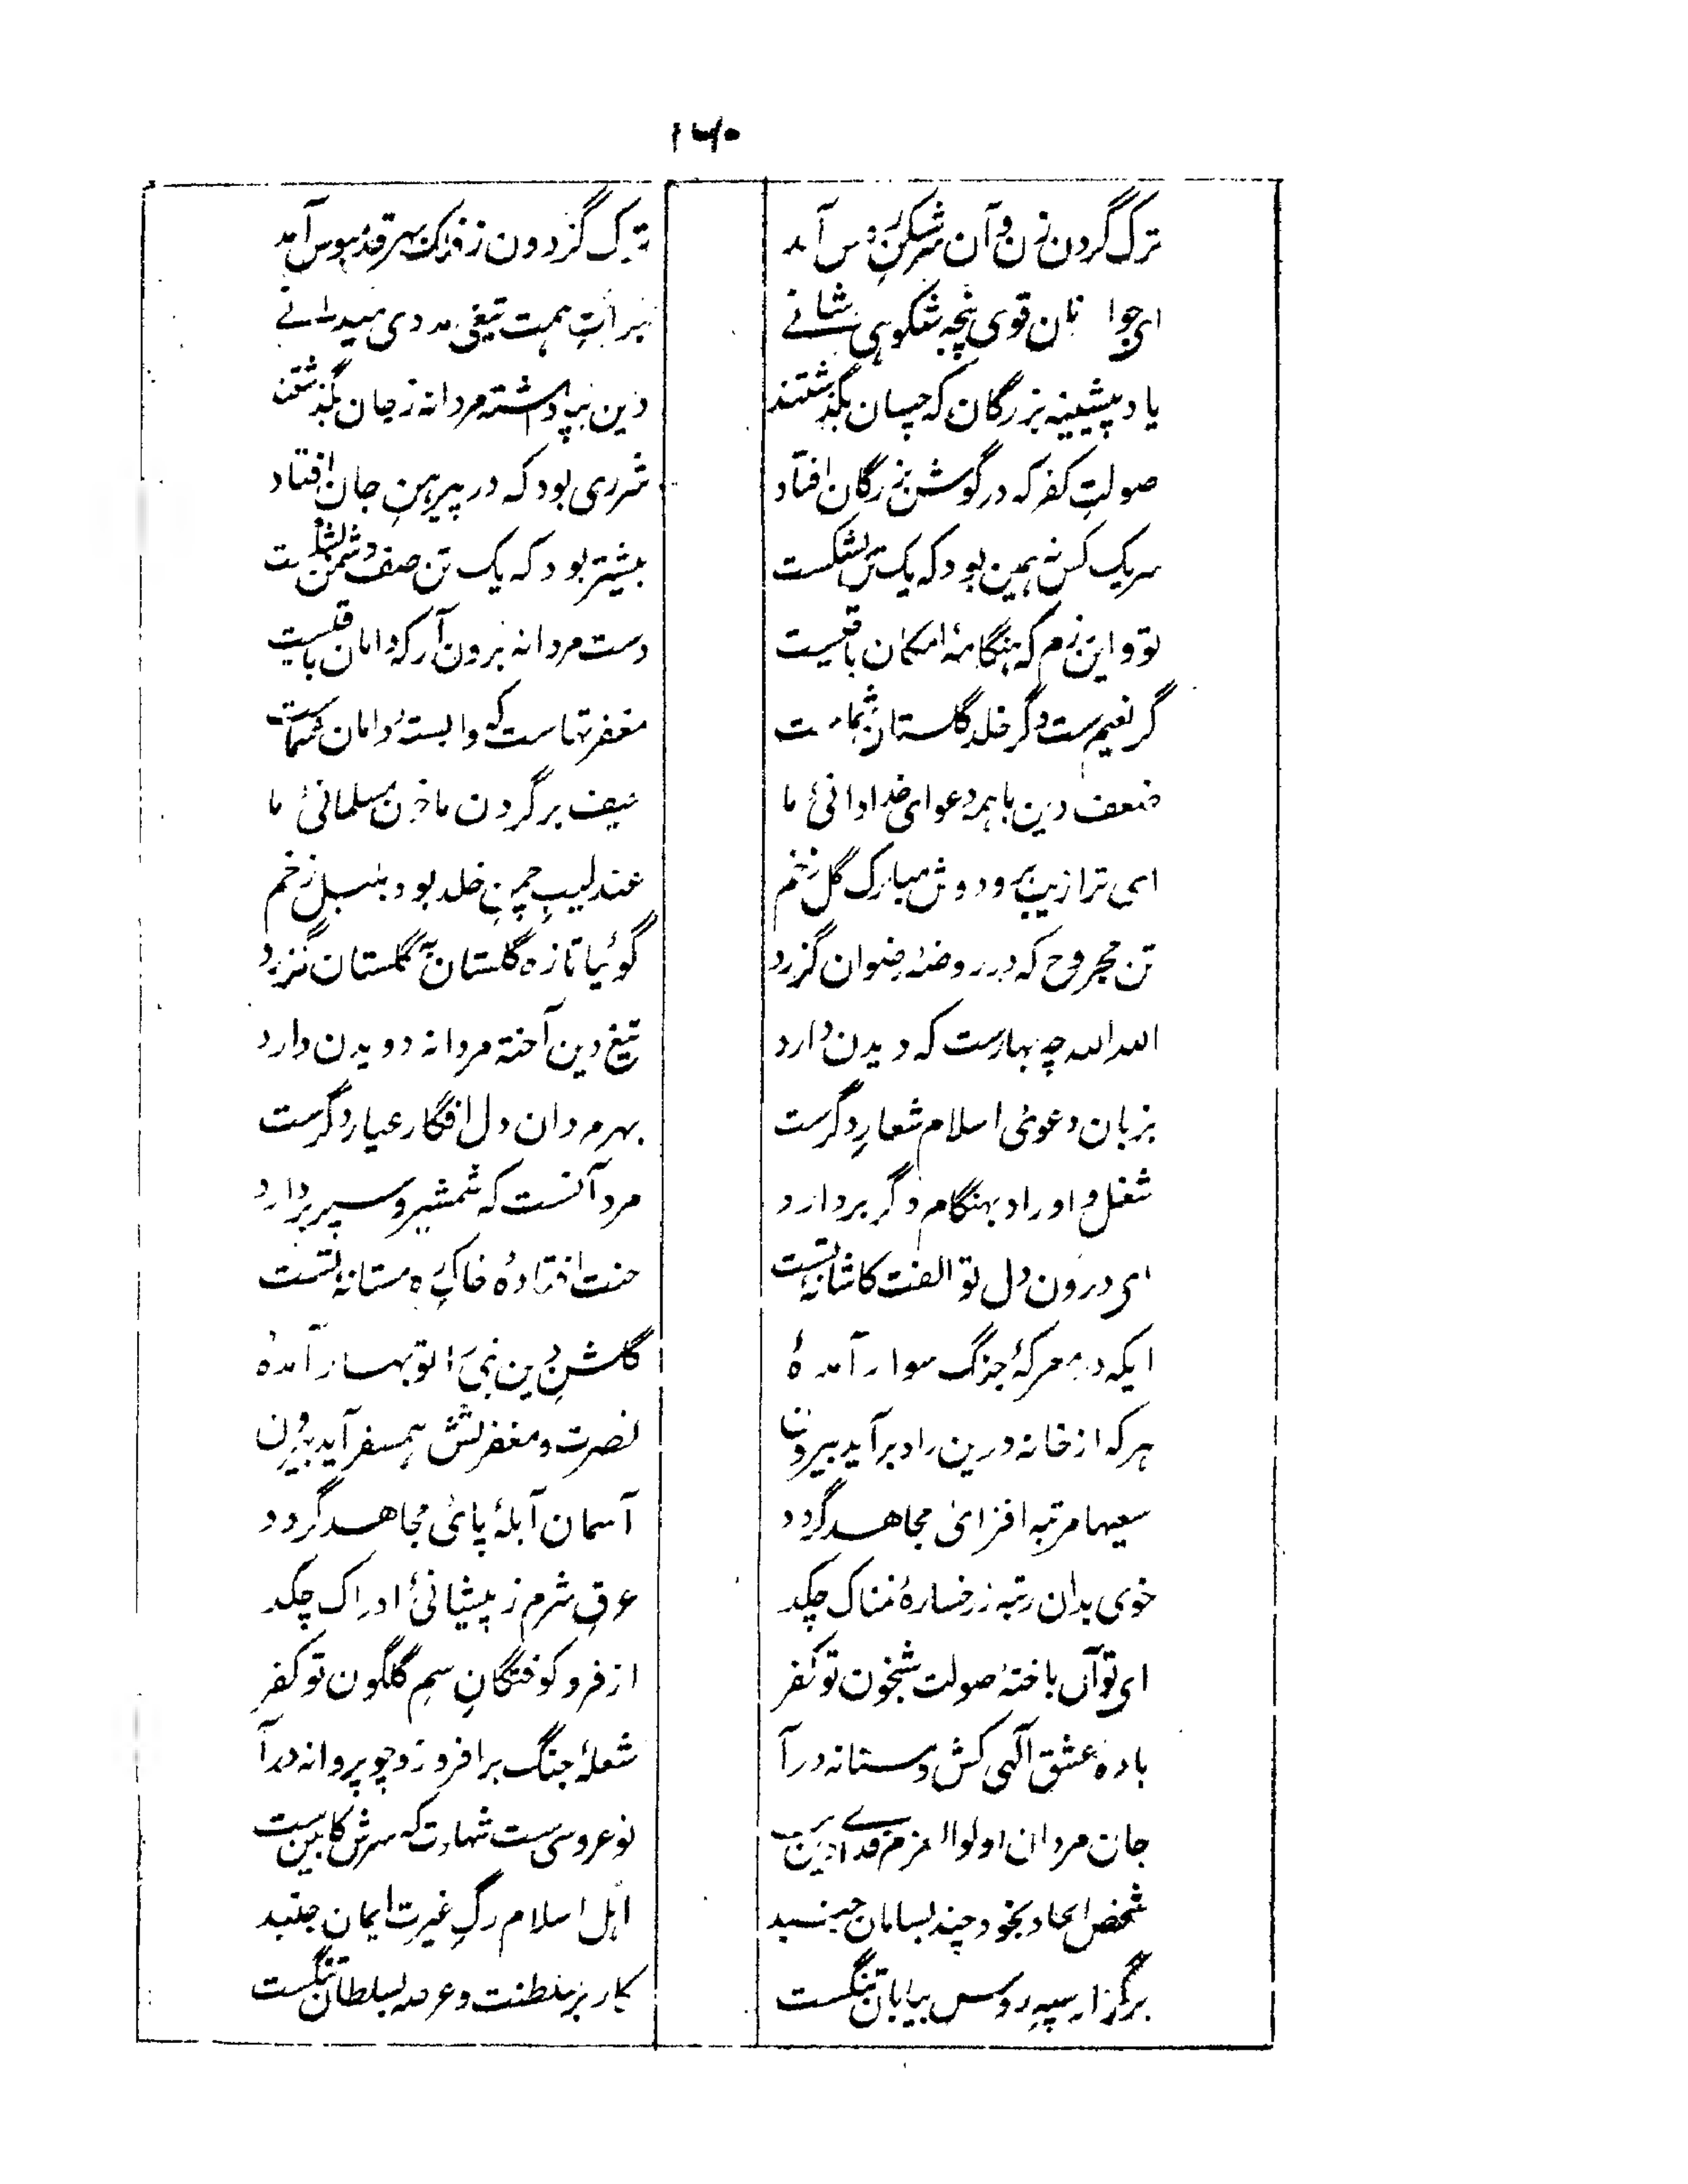 ۱۶۰
ترک گردن زن و آن سرشکن روس آمد
ترک گردون ز فلک بهر قدمبوس آمد
ای جوانان قوی پنجه شکوهی شانے
جرأت همت تیغی مددی میدانے
یاد پیشینه بزرگان که چسان بگذشتند
دین بپا داشته مردانه ز جان بگذشتند
صولتِ کفر که در گوش بزرگان افتاد
شرری بود که در پیرهنِ جان افتاد
سر یک کس نه همین بود که یک تن بشکست
بیشتر بود که یک تن صف دشمن بشکست
تو و این بزم که هنگامهٔ امکان باقیست
دست مردانه برون آر که دامان باقیست
گر نعیم ست و گر خلد گلستان شماست
مغفرتهاست که وابستهٔ دامان شماست
ضعف دین با همه دعوای خدادانیٔ ما
حیف بر گردن ما خون مسلمانیٔ ما
ای ترا زیب بر و دوش مبارک گل زخم
عندلیبِ چمنِ خلد بود بلبل زخم
تن مجروح که در روضهٔ رضوان گزرد
گوئیا تازه گلستان به گلستان گزرد
الله الله چه بهارست که دیدن دارد
تیغ دین آخته مردانه دویدن دارد
بزبان دعویٔ اسلام شعارِ دگرست
بهر مردان دل افگار عیار دگرست
شغل و اوراد بهنگام دگر بردارد
مرد آنست که شمشیر و سپر بردارد
ای درون دل تو الفت کاشانه نشست
جنت افتادهٔ خاکِ ره مستانه نشست
ایکه در معرکهٔ جنگ سوار آمدهٔ
گلشنِ دین نبی را تو بهار آمدهٔ
هر که از خانه درین راه برآید بیرون
نصرت و مغفرتش همسفر آید بیرون
سعیها مرتبه افزائ مجاهد گردد
آسمان آبلهٔ پائ مجاهد گردد
خوی بدان رتبه ز رخسارهٔ نمناک چکد
عرقِ شرم ز پیشانیٔ ادراک چکد
ای توان باختهٔ صولت شبخون تو کفر
از فرو کوفتگانِ سم گلگون تو کفر
بادهٔ عشق الٰهی کش و مستانه درآ
شعلهٔ جنگ برافروز و چو پروانه درآ
جان مردان اولوالعزم فداے دین ست
نو عروسی ست شهادت که سرش کابین ست
شخص الحاد بخود چند بسامان جنبید
اهل اسلام رگِ غیرتِ ایمان جنبد
بر گزار سپهِ روس بیابان تنگست
کار بر سلطنت و عرصه بسلطان تنگست